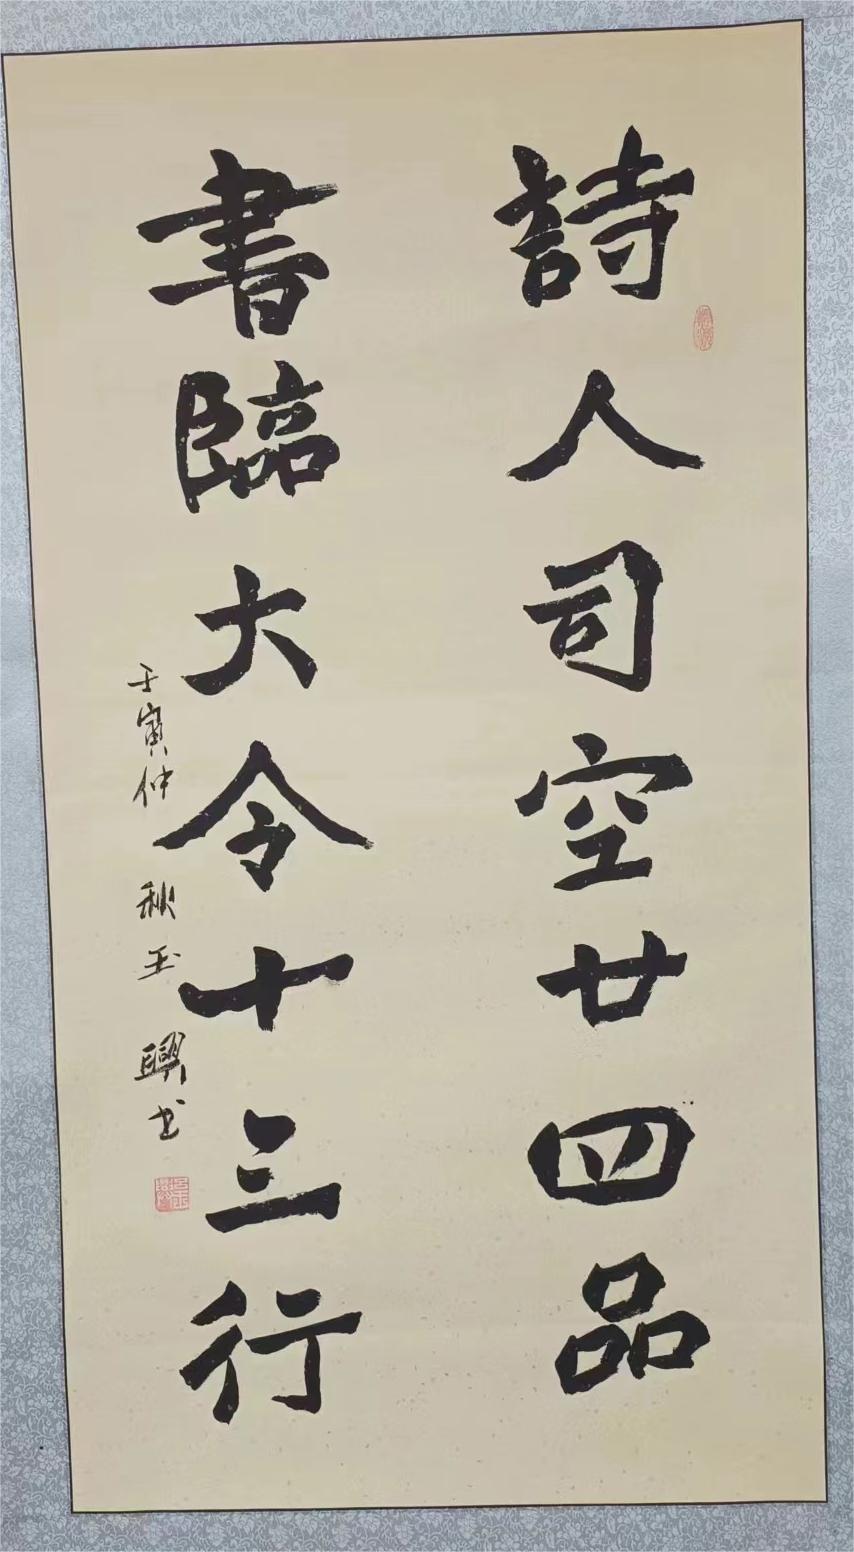 詩人司空廿四品
書臨大令十三行
壬寅仲秋玉興书